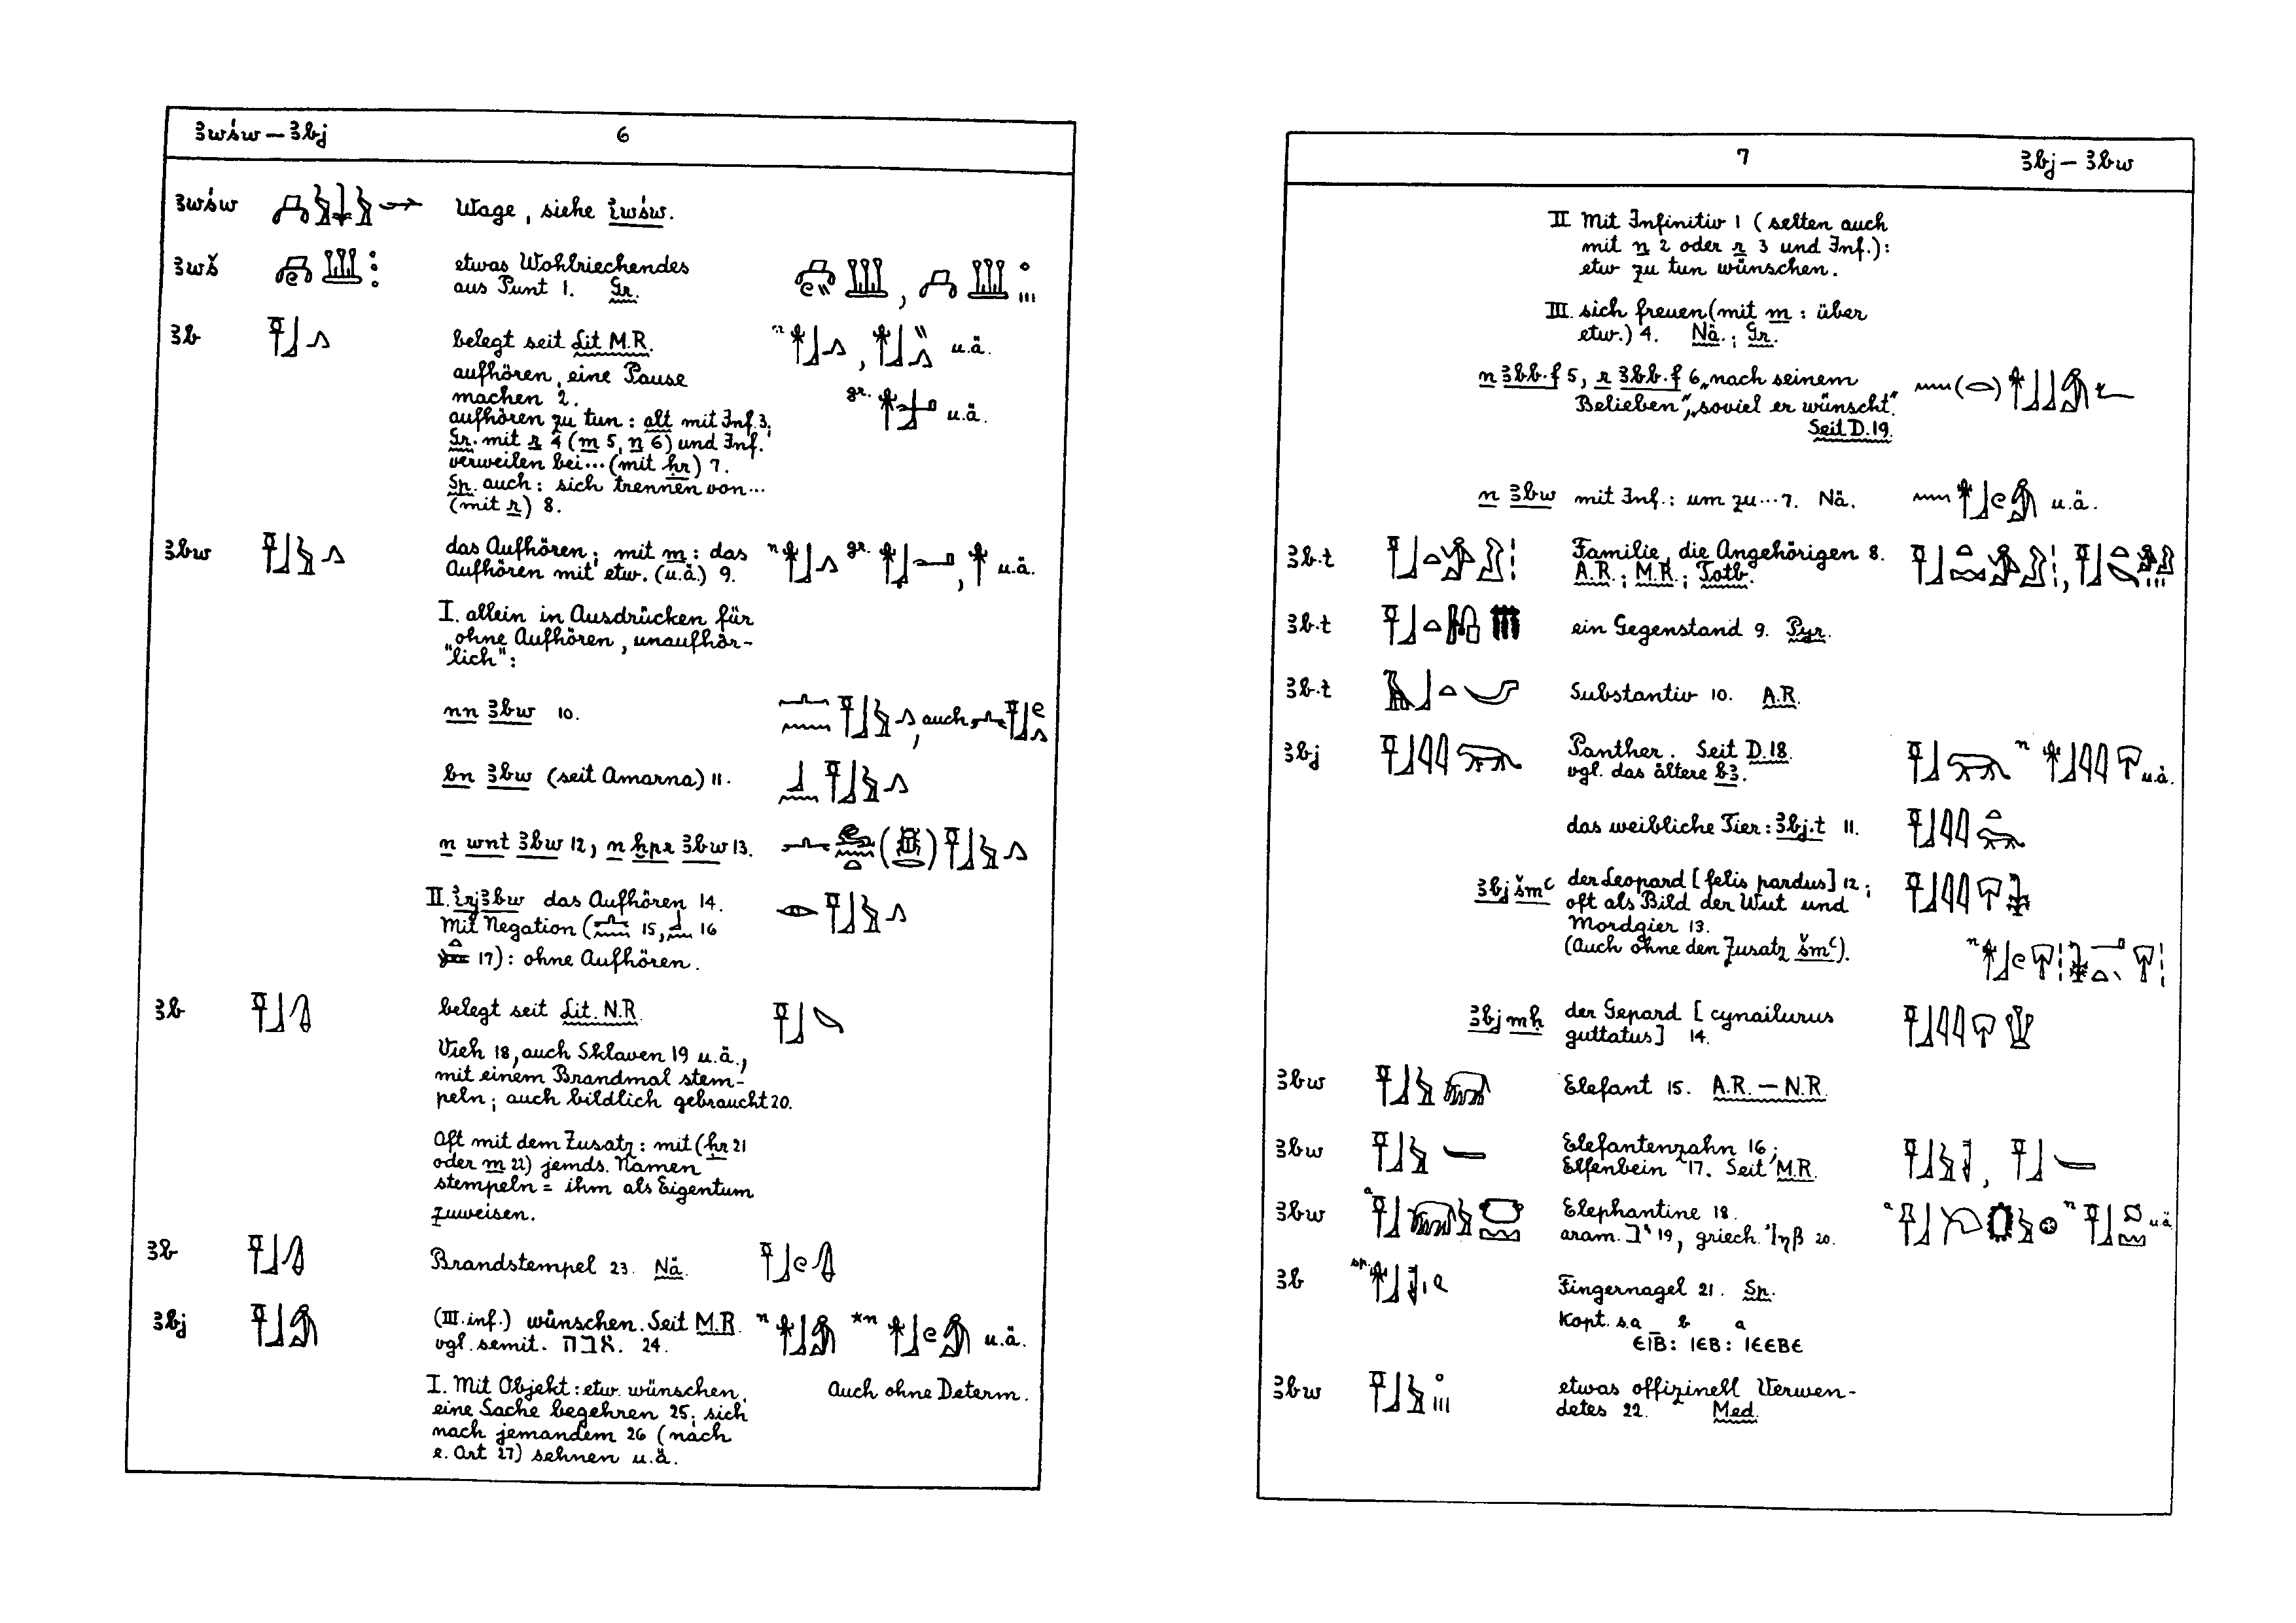 ꜣwśw — ꜣbj 6
ꜣwśw Wage, siehe i͗wśw.
ꜣwš etwas Wohlriechendes
aus Punt 1. Gr.
ꜣb belegt seit Lit M.R. u.ä.
aufhören, eine Pause
machen 2. gr. u.ä.
aufhören zu tun: alt mit Inf. 3;
Gr. mit r 4 (m 5, n 6) und Inf.
verweilen bei... (mit ḥr) 7.
Sp. auch: sich trennen von...
(mit r) 8.
ꜣbw das Aufhören; mit m: das n gr. u.ä.
Aufhören mit etw. (u.ä.) 9.
I. allein in Ausdrücken für
„ohne Aufhören, unaufhör-
lich":
nn ꜣbw 10. , auch
bn ꜣbw (seit Amarna) 11.
n wnt ꜣbw 12, n ḫpr ꜣbw 13.
II. i͗rj ꜣbw das Aufhören 14.
Mit Negation ( 15, 16
17): ohne Aufhören.
ꜣb belegt seit Lit. N.R.
Vieh 18, auch Sklaven 19 u.ä.,
mit einem Brandmal stem-
peln; auch bildlich gebraucht 20.
Oft mit dem Zusatz: mit (ḥr 21
oder m 22) jemds. Namen
stempeln = ihm als Eigentum
zuweisen.
ꜣb Brandstempel 23. Nä.
ꜣbj (III. inf.) wünschen. Seit M.R. n *n u.ä.
vgl. semit. אבה. 24.
I. Mit Objekt: etw. wünschen, Auch ohne Determ.
eine Sache begehren 25; sich
nach jemandem 26 (nach
e. Ort 27) sehnen u.ä.
7 ꜣbj — ꜣbw
II Mit Infinitiv 1 (selten auch
mit n 2 oder r 3 und Inf.):
etw zu tun wünschen.
III. sich freuen (mit m: über
etw.) 4. Nä.; Gr.
n ꜣbb.f 5, r ꜣbb.f 6 „nach seinem
Belieben", „soviel er wünscht."
Seit D.19.
n ꜣbw mit Inf.: um zu... 7. Nä. u.ä.
ꜣb.t Familie, die Angehörigen 8.
A.R.; M.R.; Totb.
ꜣb.t ein Gegenstand 9. Pyr.
ꜣb.t Substantiv 10. A.R.
ꜣbj Panther. Seit D.18. n u.ä.
vgl. das ältere bꜣ.
das weibliche Tier: ꜣbj.t 11.
ꜣbj šmꜥ der Leopard [felis pardus] 12;
oft als Bild der Wut und
Mordgier 13.
(Auch ohne den Zusatz šmꜥ). n
ꜣbj mḥ der Gepard [cynailurus
guttatus] 14.
ꜣbw Elefant 15. A.R. — N.R.
ꜣbw Elefantenzahn 16;
Elfenbein 17. Seit M.R.
ꜣbw a Elephantine 18. a n u.ä.
aram. יב 19, griech. Ιηβ 20.
ꜣb sp. Fingernagel 21. Sp.
Kopt. s.a b a
ⲉⲓⲃ̄: ⲓⲉⲃ: ⲓⲉⲉⲃⲉ
ꜣbw etwas offizinell Verwen-
detes 22. Med.